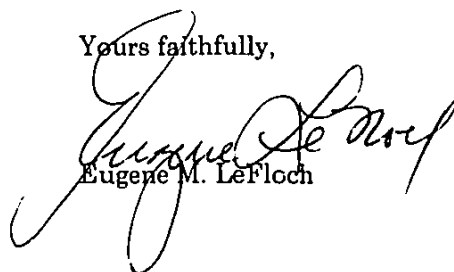 Yours faithfully,
Eugene Le Noel
Eugene M. LeFloch